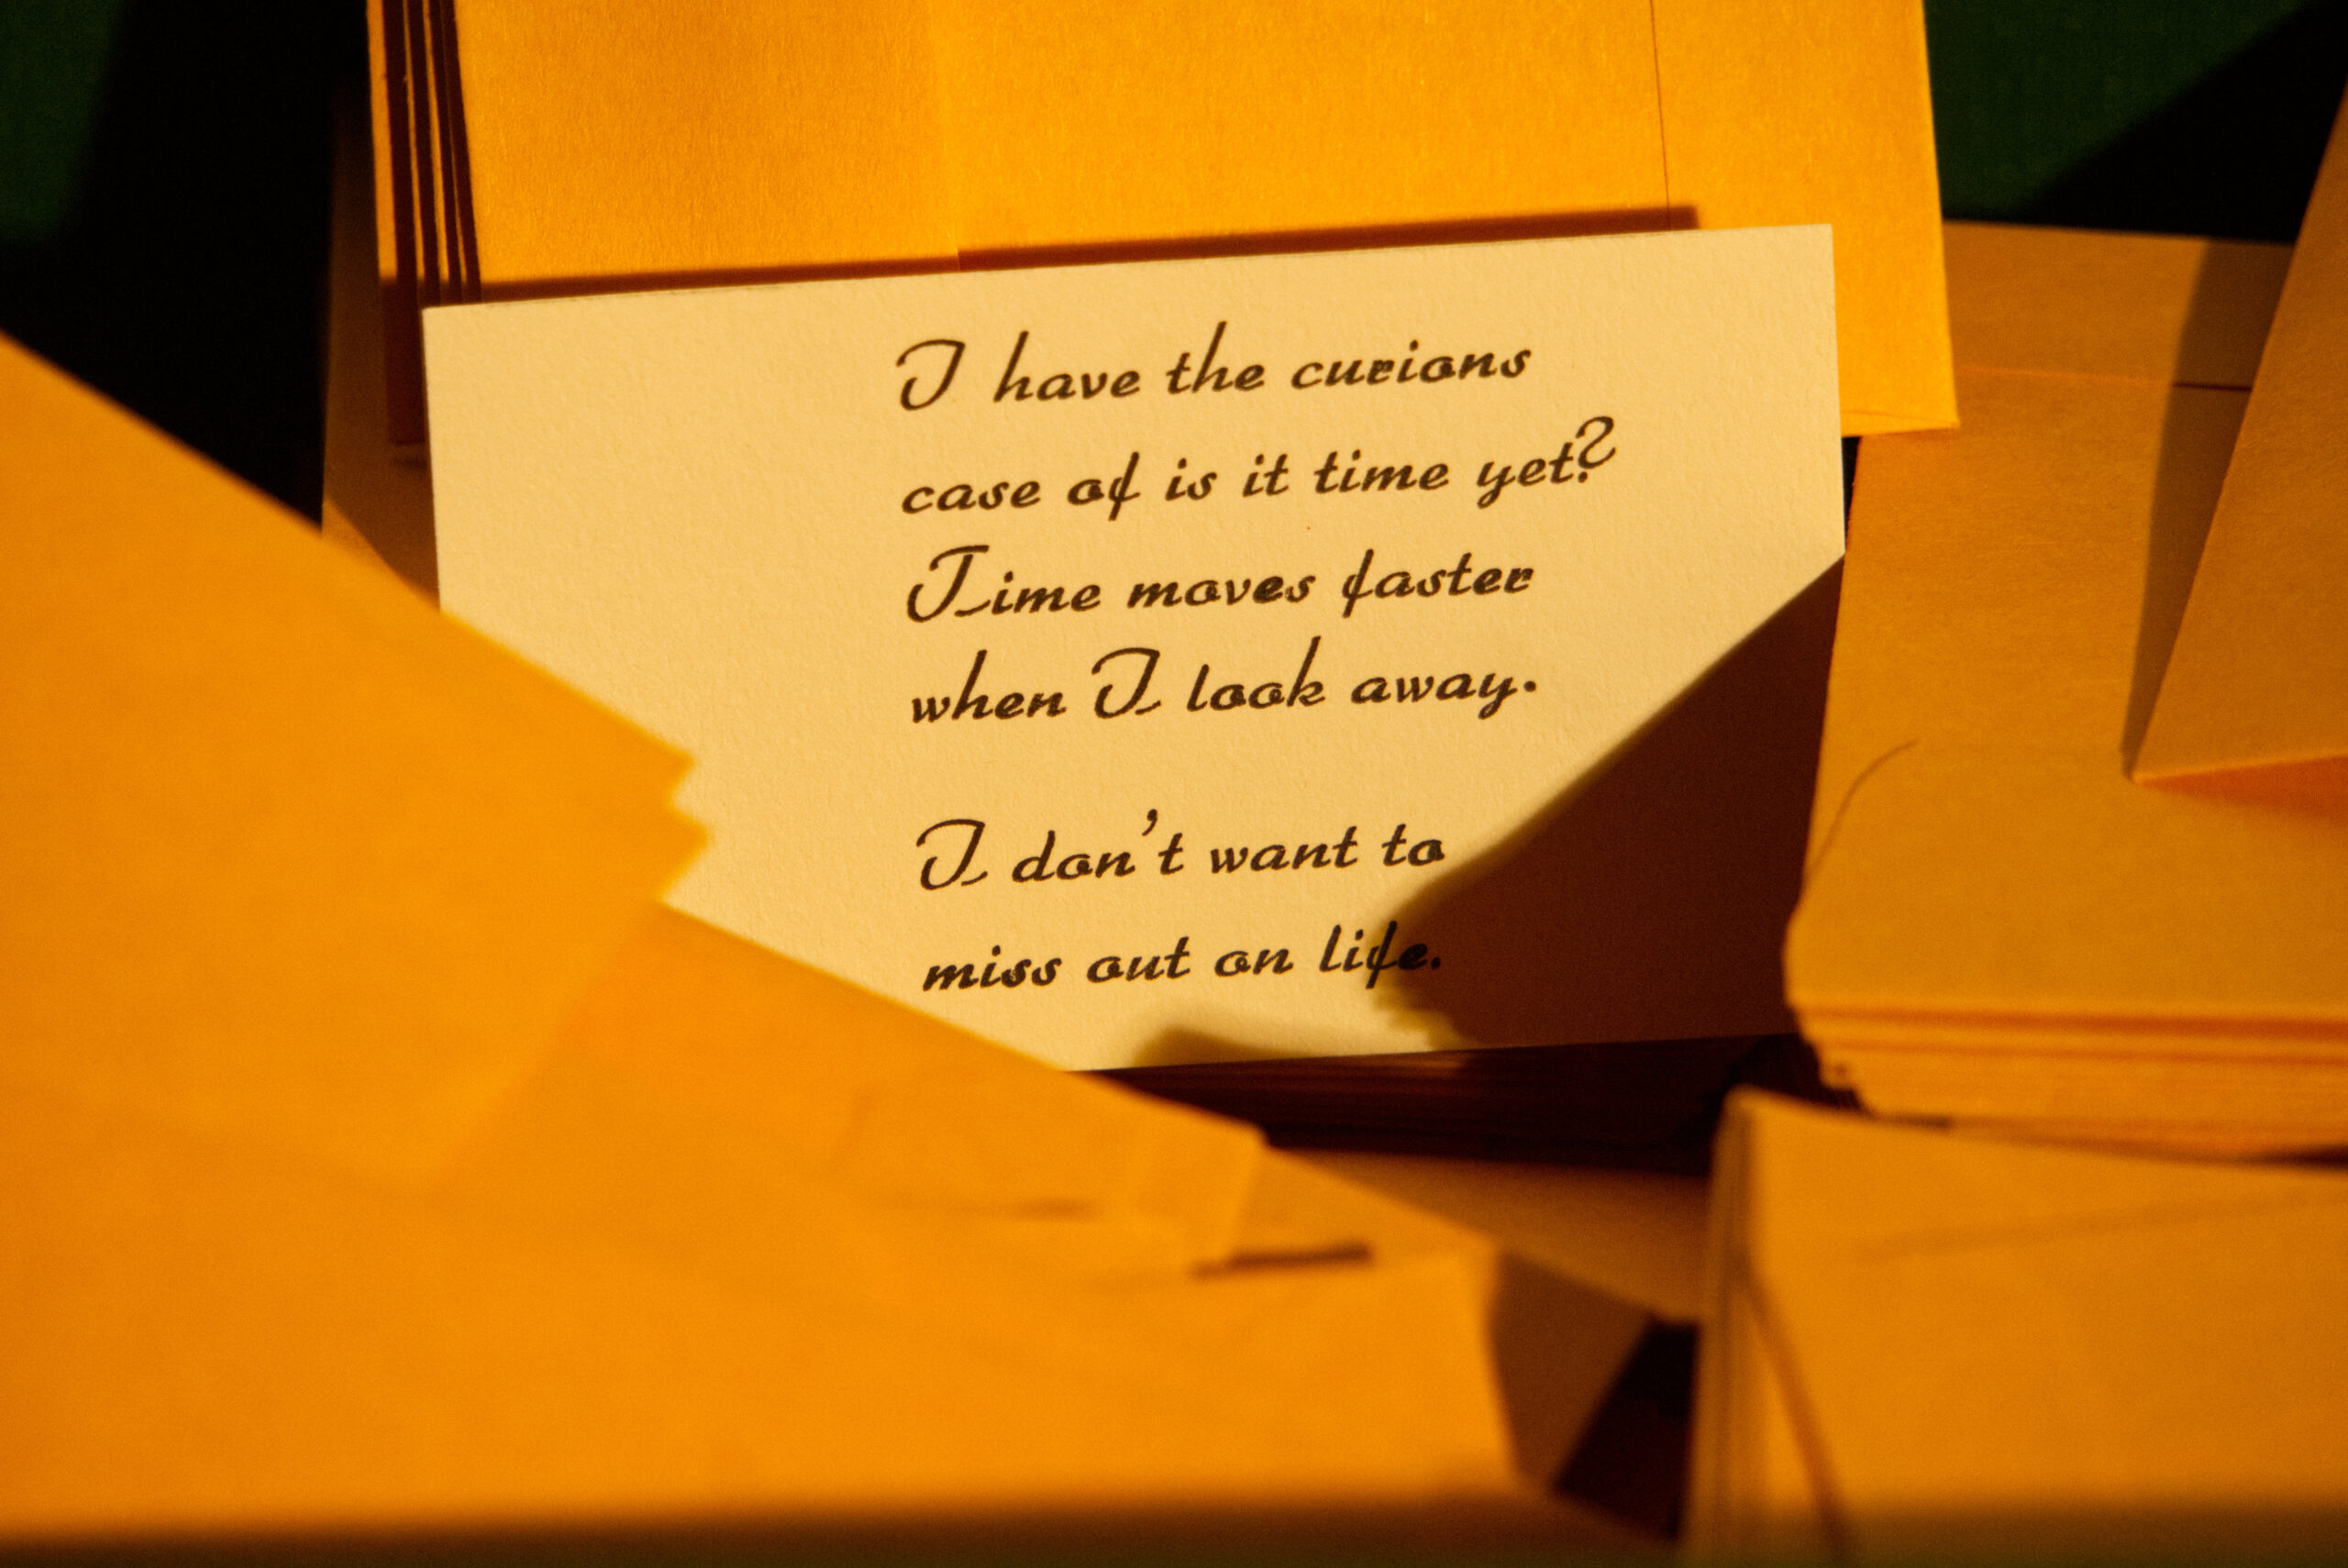 I have the curions
case of is it time yet?
Time moves faster
when I look away.
I don't want to
miss out on life.